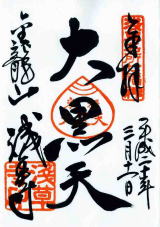 奉拝
平成二十年
三月十一日
大黒天
金龍山
浅草寺